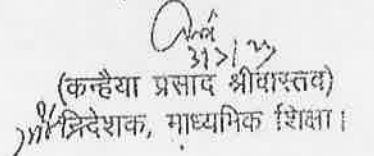 (कन्हैया प्रसाद श्रीवास्तव)
निदेशक, माध्यमिक शिक्षा।